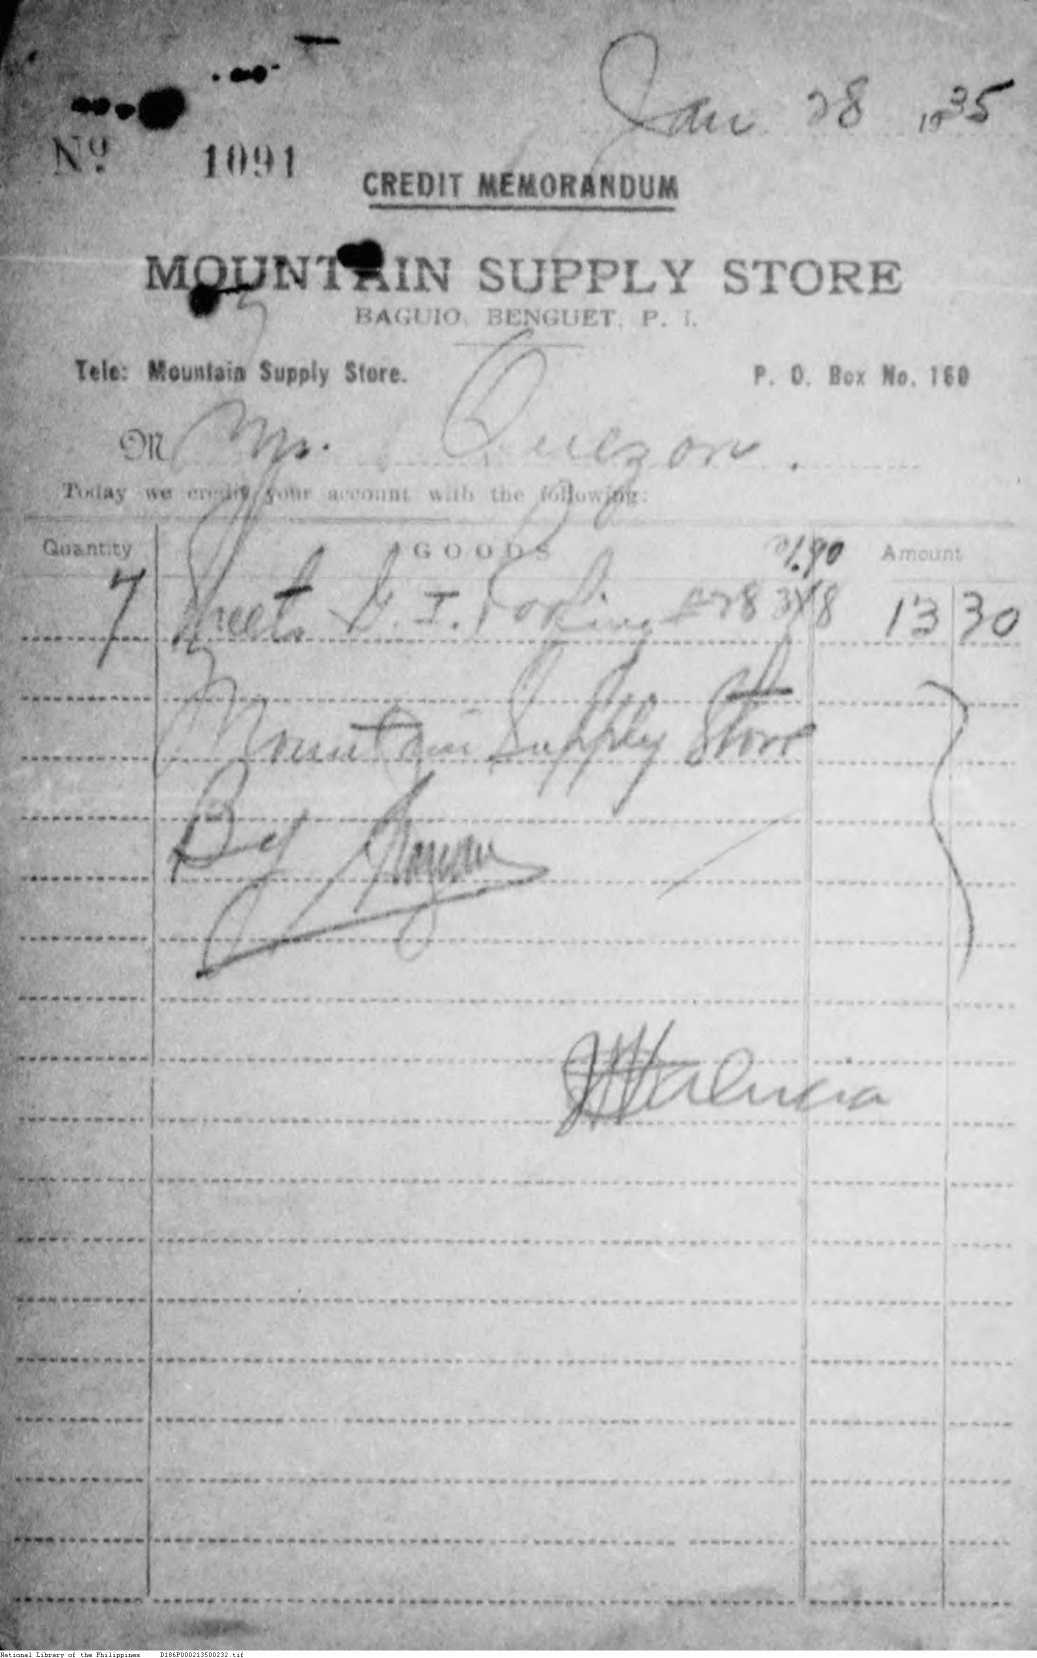 Jan 28 1935
Nº 1091
CREDIT MEMORANDUM
MOUNTAIN SUPPLY STORE
BAGUIO, BENGUET, P. I.
Tele: Mountain Supply Store. P. O. Box No. 160
M Mr. Quezon.
Today we credit your account with the following:
Quantity GOODS 1.90 Amount
7 Sheets G. I. Roofing #28 3x8 13 30
Mountain Supply Store
By
National Library of the Philippines D186P000213500232.tif